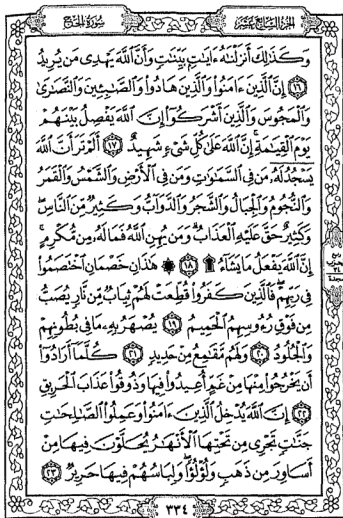 سُورَةُ الْحَجِّ
الجُزْءُ السَّابِعَ عَشَرَ
وَكَذَٰلِكَ أَنزَلْنَاهُ ءَايَاتٍ بَيِّنَاتٍ وَأَنَّ ٱللَّهَ يَهْدِى مَن يُرِيدُ
﴿١٦﴾ إِنَّ ٱلَّذِينَ ءَامَنُوا۟ وَٱلَّذِينَ هَادُوا۟ وَٱلصَّٰبِـِٔينَ وَٱلنَّصَٰرَىٰ
وَٱلْمَجُوسَ وَٱلَّذِينَ أَشْرَكُوٓا۟ إِنَّ ٱللَّهَ يَفْصِلُ بَيْنَهُمْ
يَوْمَ ٱلْقِيَٰمَةِ إِنَّ ٱللَّهَ عَلَىٰ كُلِّ شَىْءٍ شَهِيدٌ ﴿١٧﴾ أَلَمْ تَرَ أَنَّ ٱللَّهَ
يَسْجُدُ لَهُۥ مَن فِى ٱلسَّمَٰوَٰتِ وَمَن فِى ٱلْأَرْضِ وَٱلشَّمْسُ وَٱلْقَمَرُ
وَٱلنُّجُومُ وَٱلْجِبَالُ وَٱلشَّجَرُ وَٱلدَّوَآبُّ وَكَثِيرٌ مِّنَ ٱلنَّاسِ
وَكَثِيرٌ حَقَّ عَلَيْهِ ٱلْعَذَابُ وَمَن يُهِنِ ٱللَّهُ فَمَا لَهُۥ مِن مُّكْرِمٍ
إِنَّ ٱللَّهَ يَفْعَلُ مَا يَشَآءُ ۩ ﴿١٨﴾ ۞ هَٰذَانِ خَصْمَانِ ٱخْتَصَمُوا۟
فِى رَبِّهِمْ فَٱلَّذِينَ كَفَرُوا۟ قُطِّعَتْ لَهُمْ ثِيَابٌ مِّن نَّارٍ يُصَبُّ
مِن فَوْقِ رُءُوسِهِمُ ٱلْحَمِيمُ ﴿١٩﴾ يُصْهَرُ بِهِۦ مَا فِى بُطُونِهِمْ
وَٱلْجُلُودُ ﴿٢٠﴾ وَلَهُم مَّقَٰمِعُ مِنْ حَدِيدٍ ﴿٢١﴾ كُلَّمَآ أَرَادُوٓا۟
أَن يَخْرُجُوا۟ مِنْهَا مِنْ غَمٍّ أُعِيدُوا۟ فِيهَا وَذُوقُوا۟ عَذَابَ ٱلْحَرِيقِ
﴿٢٢﴾ إِنَّ ٱللَّهَ يُدْخِلُ ٱلَّذِينَ ءَامَنُوا۟ وَعَمِلُوا۟ ٱلصَّٰلِحَٰتِ
جَنَّٰتٍ تَجْرِى مِن تَحْتِهَا ٱلْأَنْهَٰرُ يُحَلَّوْنَ فِيهَا مِنْ
أَسَاوِرَ مِن ذَهَبٍ وَلُؤْلُؤًا وَلِبَاسُهُمْ فِيهَا حَرِيرٌ ﴿٢٣﴾
٣٣٤